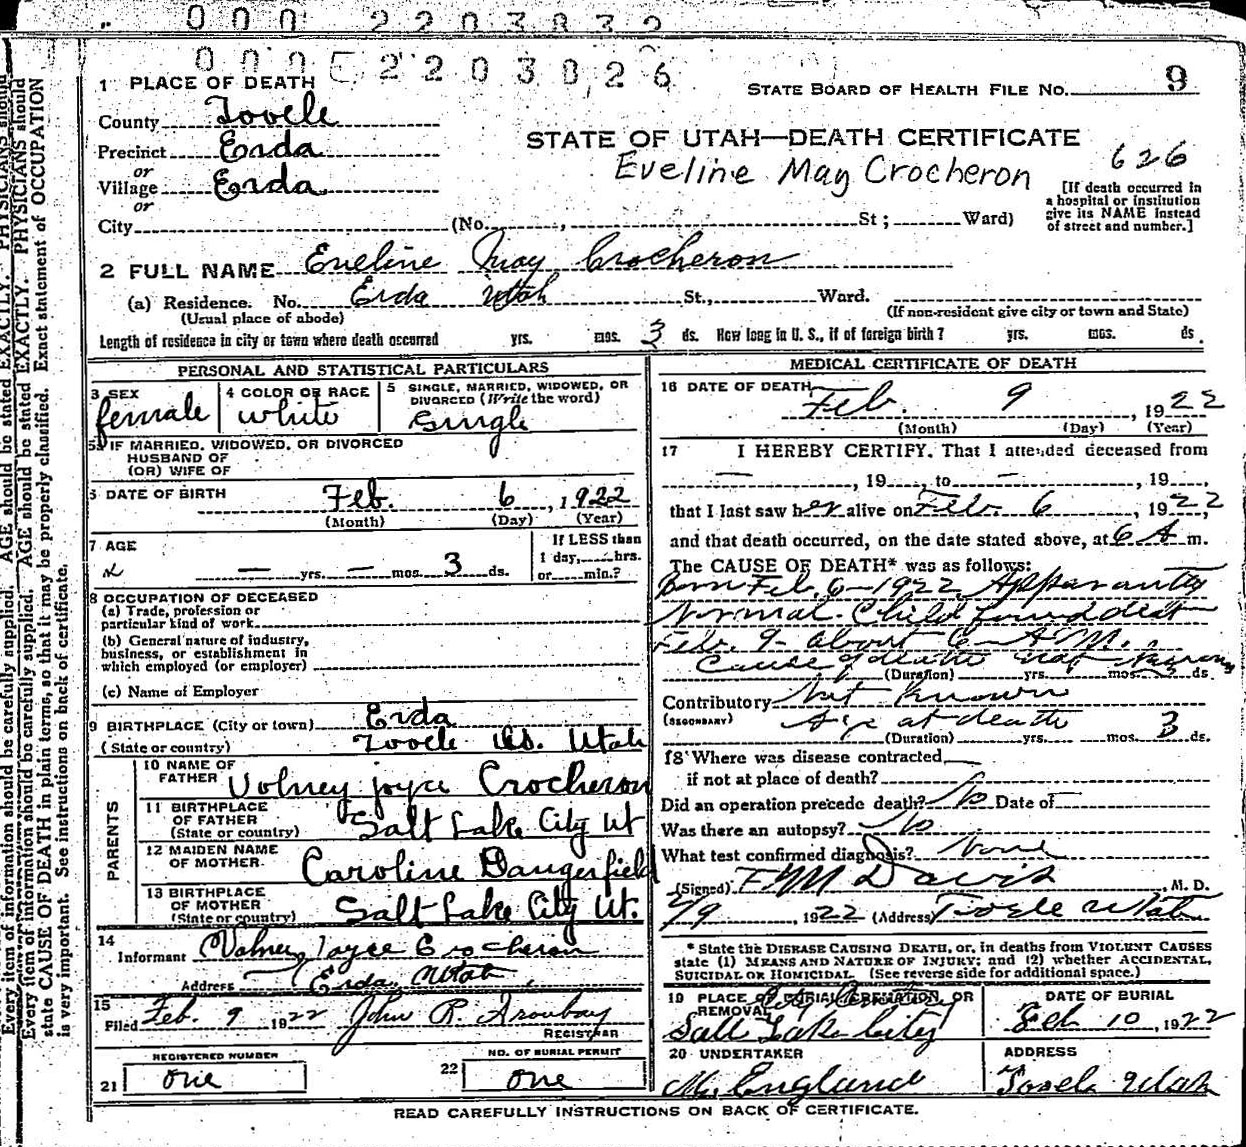 0 0 0 2 2 0 3 8 3 2
0 0 0 2 2 0 3 8 2 6
1 PLACE OF DEATH
STATE BOARD OF HEALTH FILE NO. 9
County Tooele
STATE OF UTAH—DEATH CERTIFICATE
Precinct Erda
Eveline May Crocheron 626
or
Village Erda
or
[If death occurred in
a hospital or institution
give its NAME instead
of street and number.]
City (No. , St ; Ward)
2 FULL NAME Eveline May Crocheron
(a) Residence. No. Erda Utah St., Ward.
(Usual place of abode)
(If non-resident give city or town and State)
Length of residence in city or town where death occurred yrs. mos. 3 ds. How long in U. S., if of foreign birth? yrs. mos. ds.
PERSONAL AND STATISTICAL PARTICULARS
3 SEX
female
4 COLOR OR RACE
white
5 SINGLE, MARRIED, WIDOWED, OR
DIVORCED (Write the word)
Single
5a IF MARRIED, WIDOWED, OR DIVORCED
HUSBAND OF
(OR) WIFE OF
6 DATE OF BIRTH Feb. 6, 1922
(Month) (Day) (Year)
7 AGE
— yrs. — mos. 3 ds.
If LESS than
1 day, hrs.
or min.?
8 OCCUPATION OF DECEASED
(a) Trade, profession or
particular kind of work
(b) General nature of industry,
business, or establishment in
which employed (or employer)
(c) Name of Employer
9 BIRTHPLACE (City or town) Erda
(State or country) Tooele Co. Utah
PARENTS
10 NAME OF
FATHER Volney Joyce Crocheron
11 BIRTHPLACE
OF FATHER
(State or country) Salt Lake City Ut
12 MAIDEN NAME
OF MOTHER Caroline Dangerfield
13 BIRTHPLACE
OF MOTHER
(State or country) Salt Lake City Ut.
14
Informant Volney Joyce Crocheron
Address Erda, Utah
15
Filed Feb. 9 1922 John R.
REGISTRAR
REGISTERED NUMBER
21 one
NO. OF BURIAL PERMIT
22 one
MEDICAL CERTIFICATE OF DEATH
16 DATE OF DEATH
Feb. 9, 1922
(Month) (Day) (Year)
17 I HEREBY CERTIFY, That I attended deceased from
— , 19 , to — , 19 ,
that I last saw her alive on Feb. 6, 1922,
and that death occurred, on the date stated above, at 6 A m.
The CAUSE OF DEATH* was as follows:
Born Feb. 6-1922. Apparently
Normal. Child found dead
Feb. 9- about 6- A.M.
Cause of death not known
(Duration) yrs. mos. ds.
Contributory Not Known
(SECONDARY) Age at death
(Duration) yrs. mos. 3 ds.
18 Where was disease contracted
if not at place of death?
Did an operation precede death? No Date of —
Was there an autopsy? No
What test confirmed diagnosis? None
(Signed) F M Davis, M. D.
2/9, 1922 (Address) Tooele Utah
* State the DISEASE CAUSING DEATH, or, in deaths from VIOLENT CAUSES
state (1) MEANS AND NATURE OF INJURY; and (2) whether ACCIDENTAL,
SUICIDAL OR HOMICIDAL. (See reverse side for additional space.)
19 PLACE OF BURIAL, CREMATION, OR
REMOVAL City Cemetery
Salt Lake City
DATE OF BURIAL
Feb 10, 1922
20 UNDERTAKER
M. England
ADDRESS
Tooele Utah
READ CAREFULLY INSTRUCTIONS ON BACK OF CERTIFICATE.
Every item of information should be carefully supplied. AGE should be stated EXACTLY. PHYSICIANS should
state CAUSE OF DEATH in plain terms, so that it may be properly classified. Exact statement of OCCUPATION
is very important. See instructions on back of certificate.